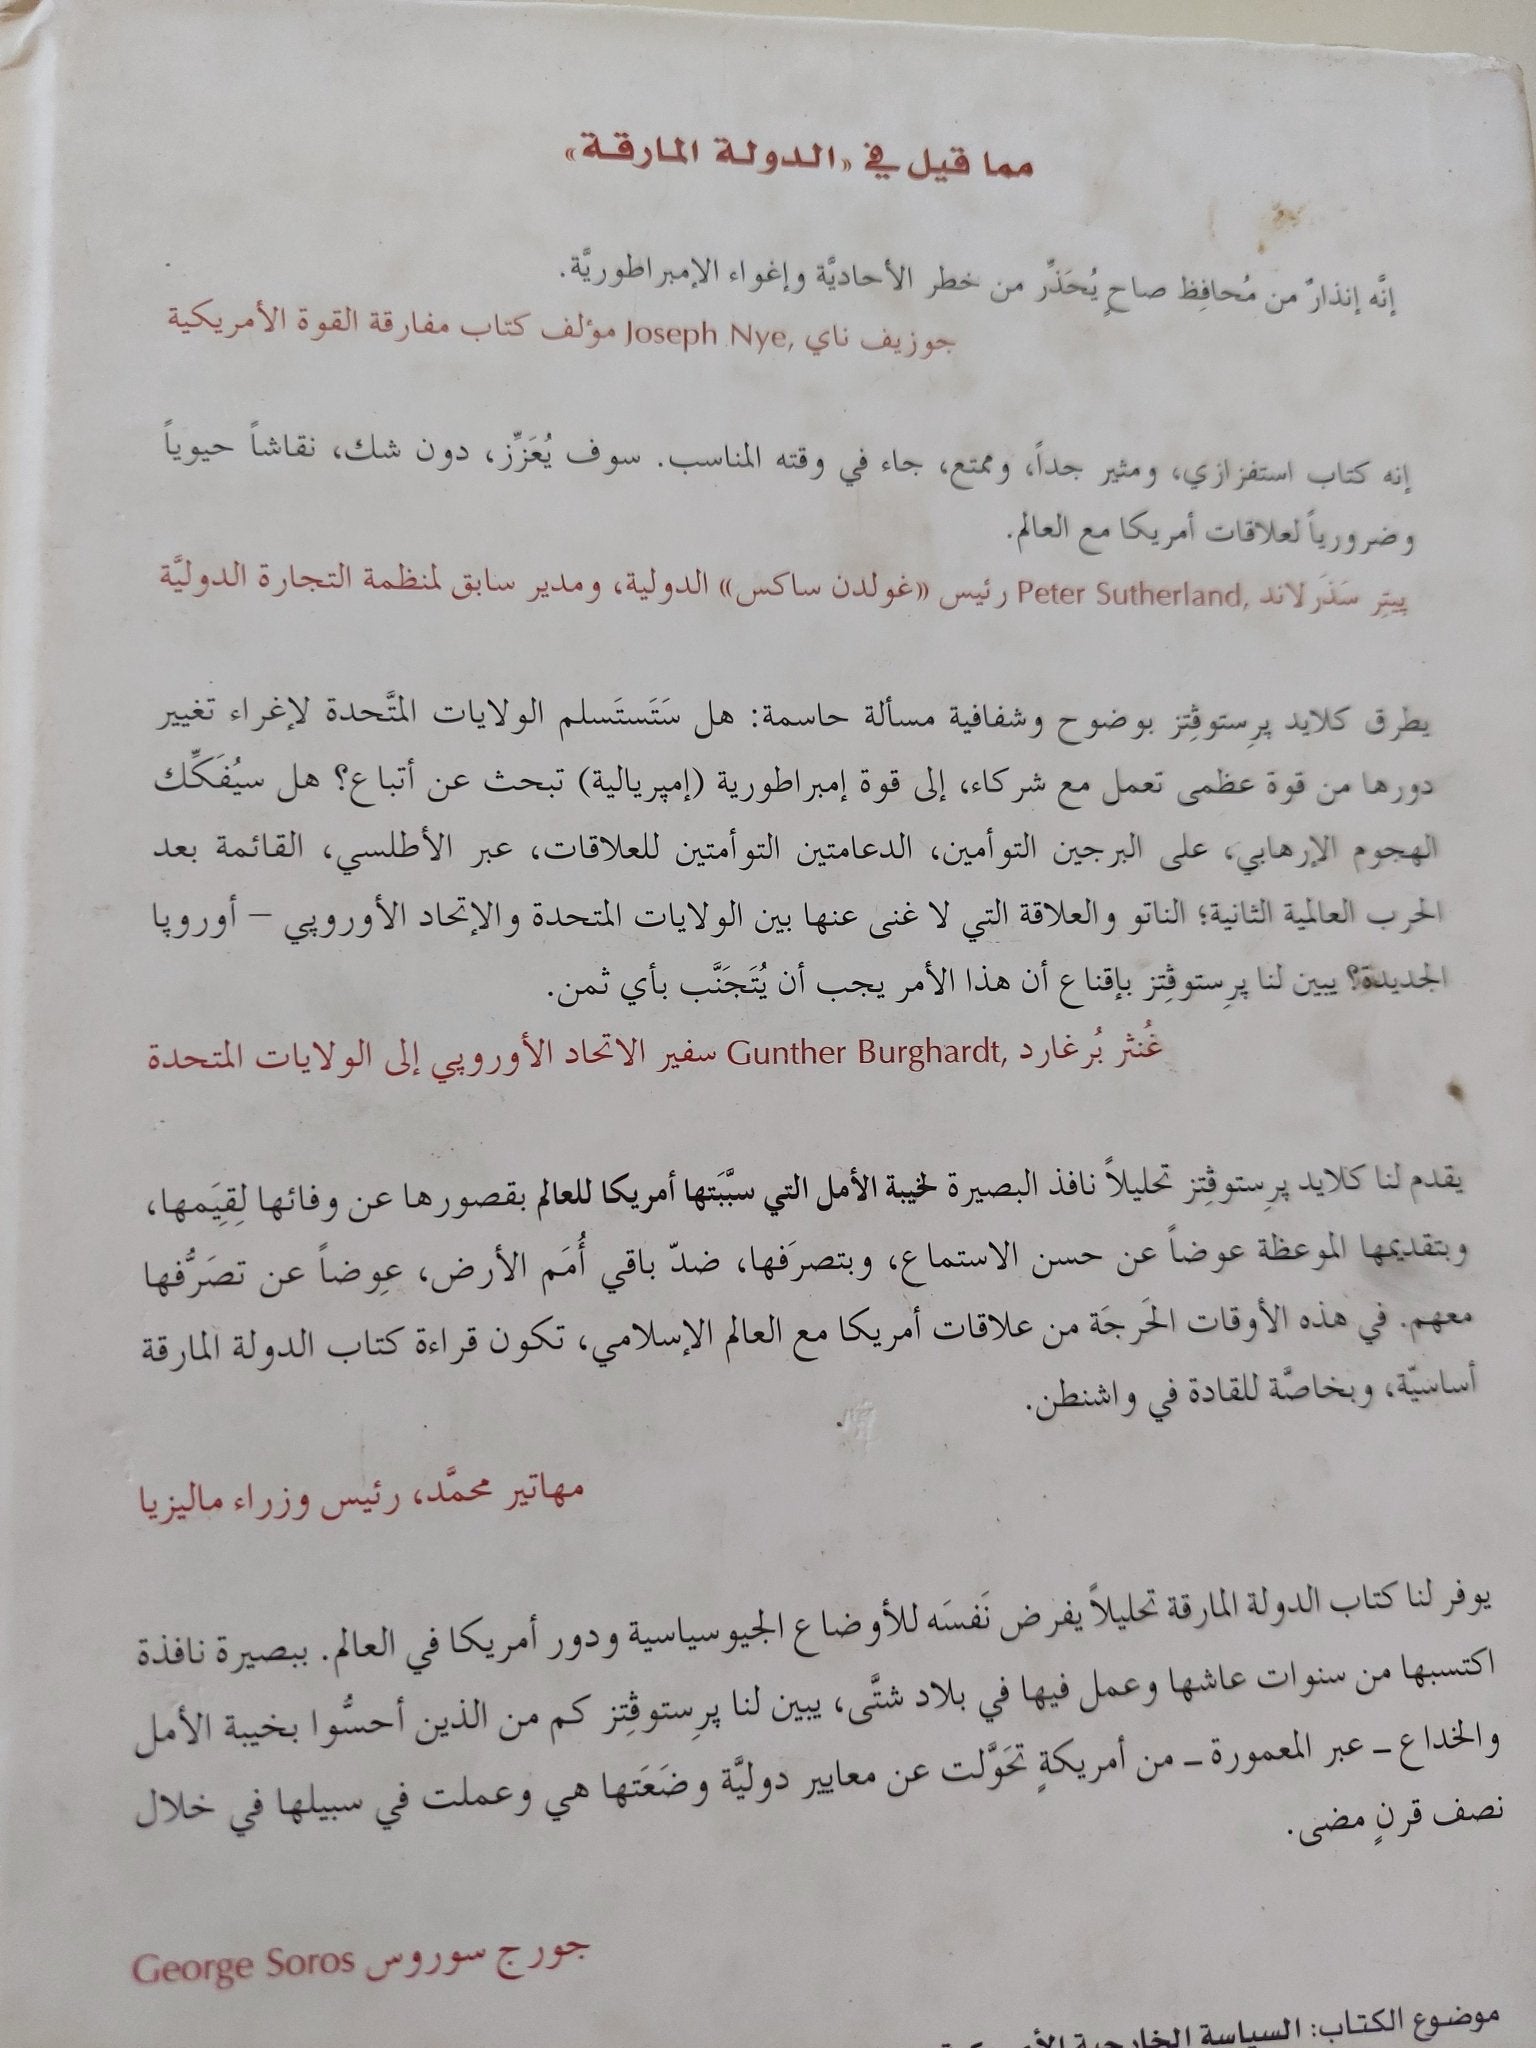 مما قيل في «الدولة المارقة»
إنَّه إنذارٌ من مُحافِظ صاحٍ يُحَذِّر من خطر الأحاديَّة وإغواء الإمبراطوريَّة.
جوزيف ناي Joseph Nye, مؤلف كتاب مفارقة القوة الأمريكية
إنه كتاب استفزازي، ومثير جداً، وممتع، جاء في وقته المناسب. سوف يُعَزِّز، دون شك، نقاشاً حيوياً
وضرورياً لعلاقات أمريكا مع العالم.
پيتِر سَذَرلاند Peter Sutherland, رئيس «غولدن ساكس» الدولية، ومدير سابق لمنظمة التجارة الدوليَّة
يطرق كلايد پرِستوڤِتز بوضوح وشفافية مسألة حاسمة: هل سَتَستَسلم الولايات المتَّحدة لإغراء تغيير
دورها من قوة عظمى تعمل مع شركاء، إلى قوة إمبراطورية (إمپريالية) تبحث عن أتباع؟ هل سيُفَكِّك
الهجوم الإرهابي، على البرجين التوأمين، الدعامتين التوأمتين للعلاقات، عبر الأطلسي، القائمة بعد
الحرب العالمية الثانية؛ الناتو والعلاقة التي لا غنى عنها بين الولايات المتحدة والإتحاد الأوروپي – أوروپا
الجديدة؟ يبين لنا پرِستوڤِتز بإقناع أن هذا الأمر يجب أن يُتَجَنَّب بأي ثمن.
غُنثر بُرغارد Gunther Burghardt, سفير الاتحاد الأوروپي إلى الولايات المتحدة
يقدم لنا كلايد پرِستوڤِتز تحليلاً نافذ البصيرة لخيبة الأمل التي سبَّبَتها أمريكا للعالم بقصورها عن وفائها لِقِيَمها،
وبتقديمها الموعظة عوضاً عن حسن الاستماع، وبتصرَفها، ضدّ باقي أُمَم الأرض، عِوضاً عن تصَرُّفها
معهم. في هذه الأوقات الحَرجَة من علاقات أمريكا مع العالم الإسلامي، تكون قراءة كتاب الدولة المارقة
أساسيّة، وبخاصَّة للقادة في واشنطن.
مهاتير محمَّد، رئيس وزراء ماليزيا
يوفر لنا كتاب الدولة المارقة تحليلاً يفرض نَفسَه للأوضاع الجيوسياسية ودور أمريكا في العالم. ببصيرة نافذة
اكتسبها من سنوات عاشها وعمل فيها في بلاد شتَّى، يبين لنا پرِستوڤِتز كم من الذين أحسُّوا بخيبة الأمل
والخداع – عبر المعمورة – من أمريكةٍ تحَوَّلت عن معايير دوليَّة وضَعَتها هي وعملت في سبيلها في خلال
نصف قرنٍ مضى.
جورج سوروس George Soros
موضوع الكتاب: السياسة الخارجية